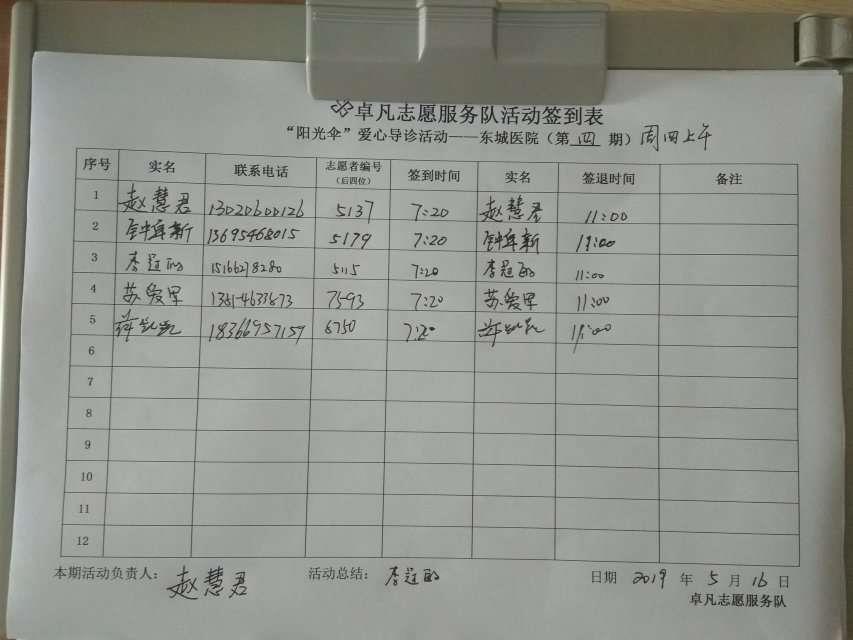 卓凡志愿服务队活动签到表
“阳光伞”爱心导诊活动——东城医院（第 四 期）周四上午
序号 实名 联系电话 志愿者编号（后四位） 签到时间 实名 签退时间 备注
1 赵慧君 13020600126 5137 7:20 赵慧君 11:00
2 钟年新 13695468015 5179 7:20 钟年新 11:00
3 李 15166278280 5115 7:20 李 11:00
4 苏爱军 7593 7:20 苏爱军 11:00
5 18366957159 6750 7:20 11:00
6
7
8
9
10
11
12
本期活动负责人： 赵慧君 活动总结： 李 日期 2019 年 5 月 16 日
卓凡志愿服务队